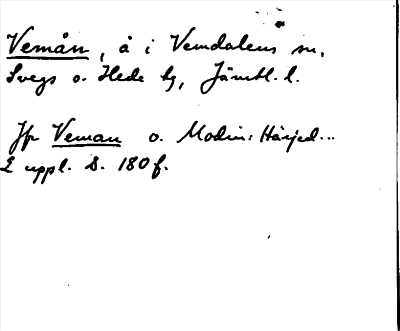 Vemån, å i Vemdalens sn,
Svegs o. Hede tg, Jämtl. l.
Jfr Veman o. Modin: Härjed...
2 uppl. S. 180 f.